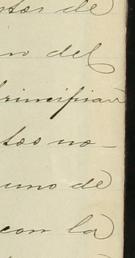 de
del
principiar
tos no-
uno de
con la